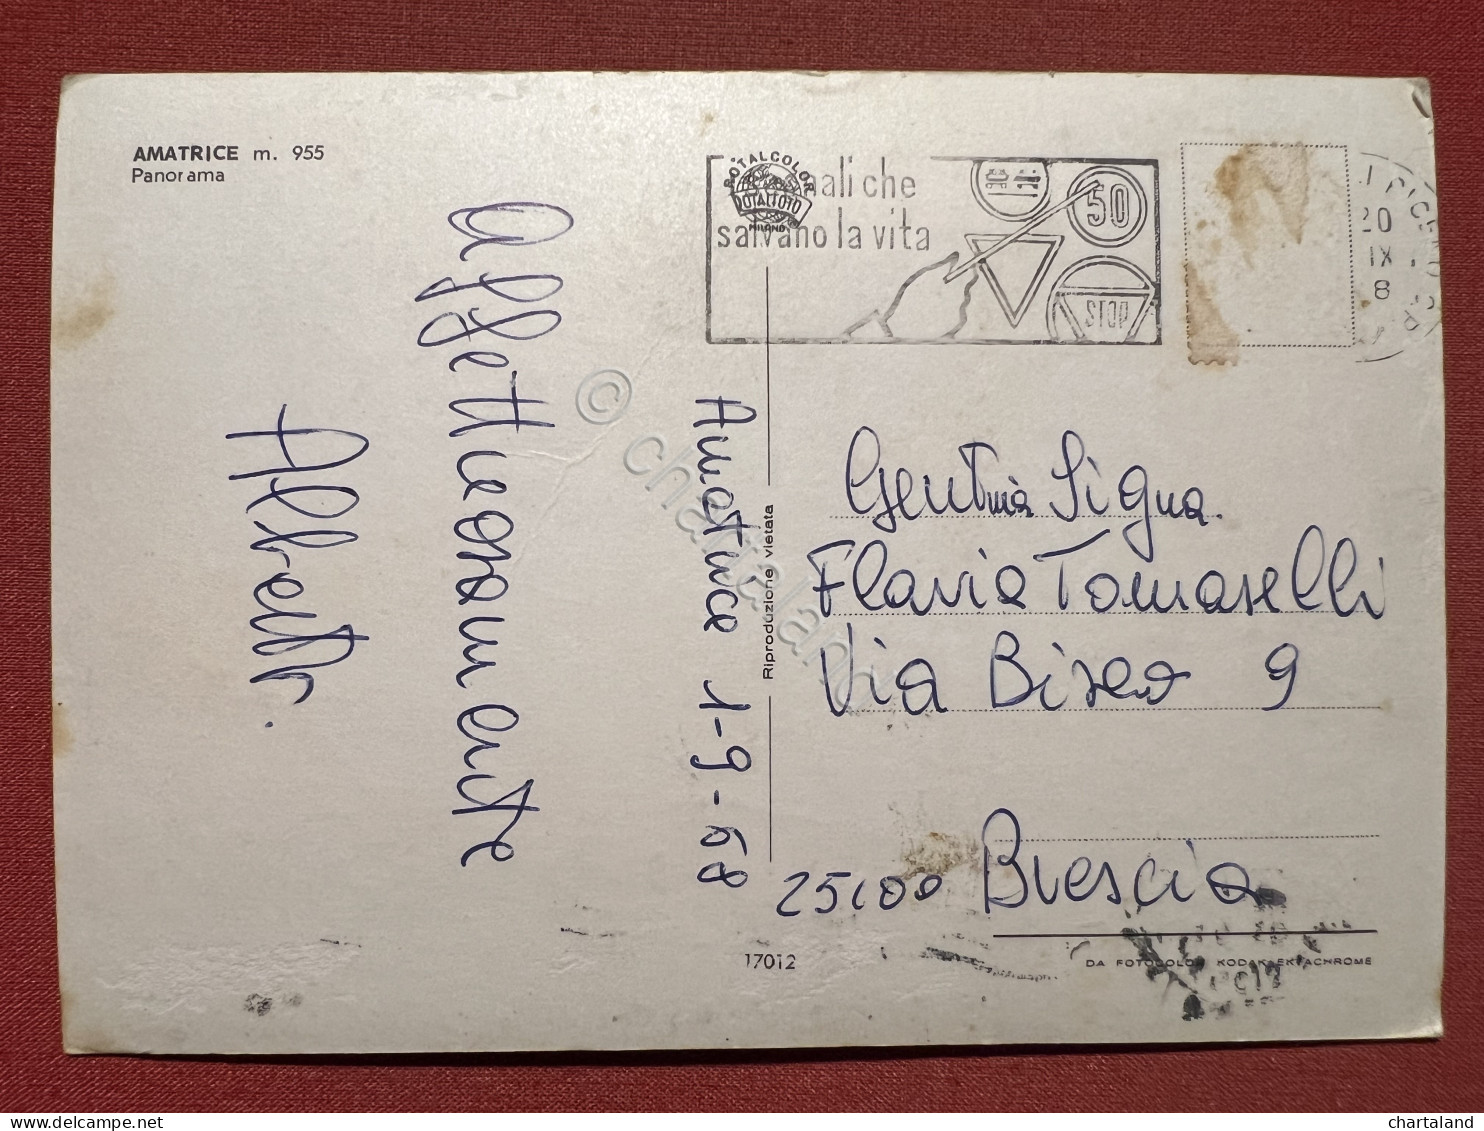 AMATRICE m. 955
Panorama
ROTALCOLOR
ROTALFOTO
MILANO
nali che
salvano la vita
50
STOP
20
IX
8
Affettuosamente
Alberto.
Amatrice 1-9-68
Riproduzione vietata
Gent.ma Sig.na
Flavia Tomaselli
Via Biseo 9
25100 Brescia
17012
DA FOTOCOLOR KODAK EKTACHROME
© chartaland
delcampe.net
chartaland